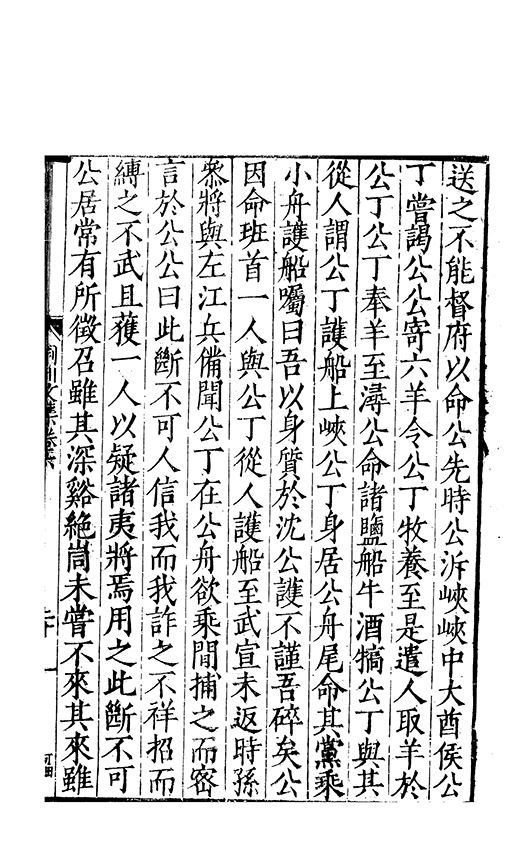 送之不能督府以命公先時公泝峽峽中大酋侯公
丁嘗謁公公寄六羊令公丁牧養至是遣人取羊於
公丁公丁奉羊至潯公命諸鹽船牛酒犒公丁與其
從人謂公丁護船上峽公丁身居公舟尾命其黨乘
小舟護船囑曰吾以身質於沈公護不謹吾碎矣公
因命班首一人與公丁從人護船至武宣未返時孫
叅將與左江兵備聞公丁在公舟欲乘間捕之而密
言於公公曰此斷不可人信我而我詐之不祥招而
縛之不武且獲一人以疑諸夷將焉用之此斷不可
公居常有所徵召雖其深谿絶峝未嘗不來其來雖